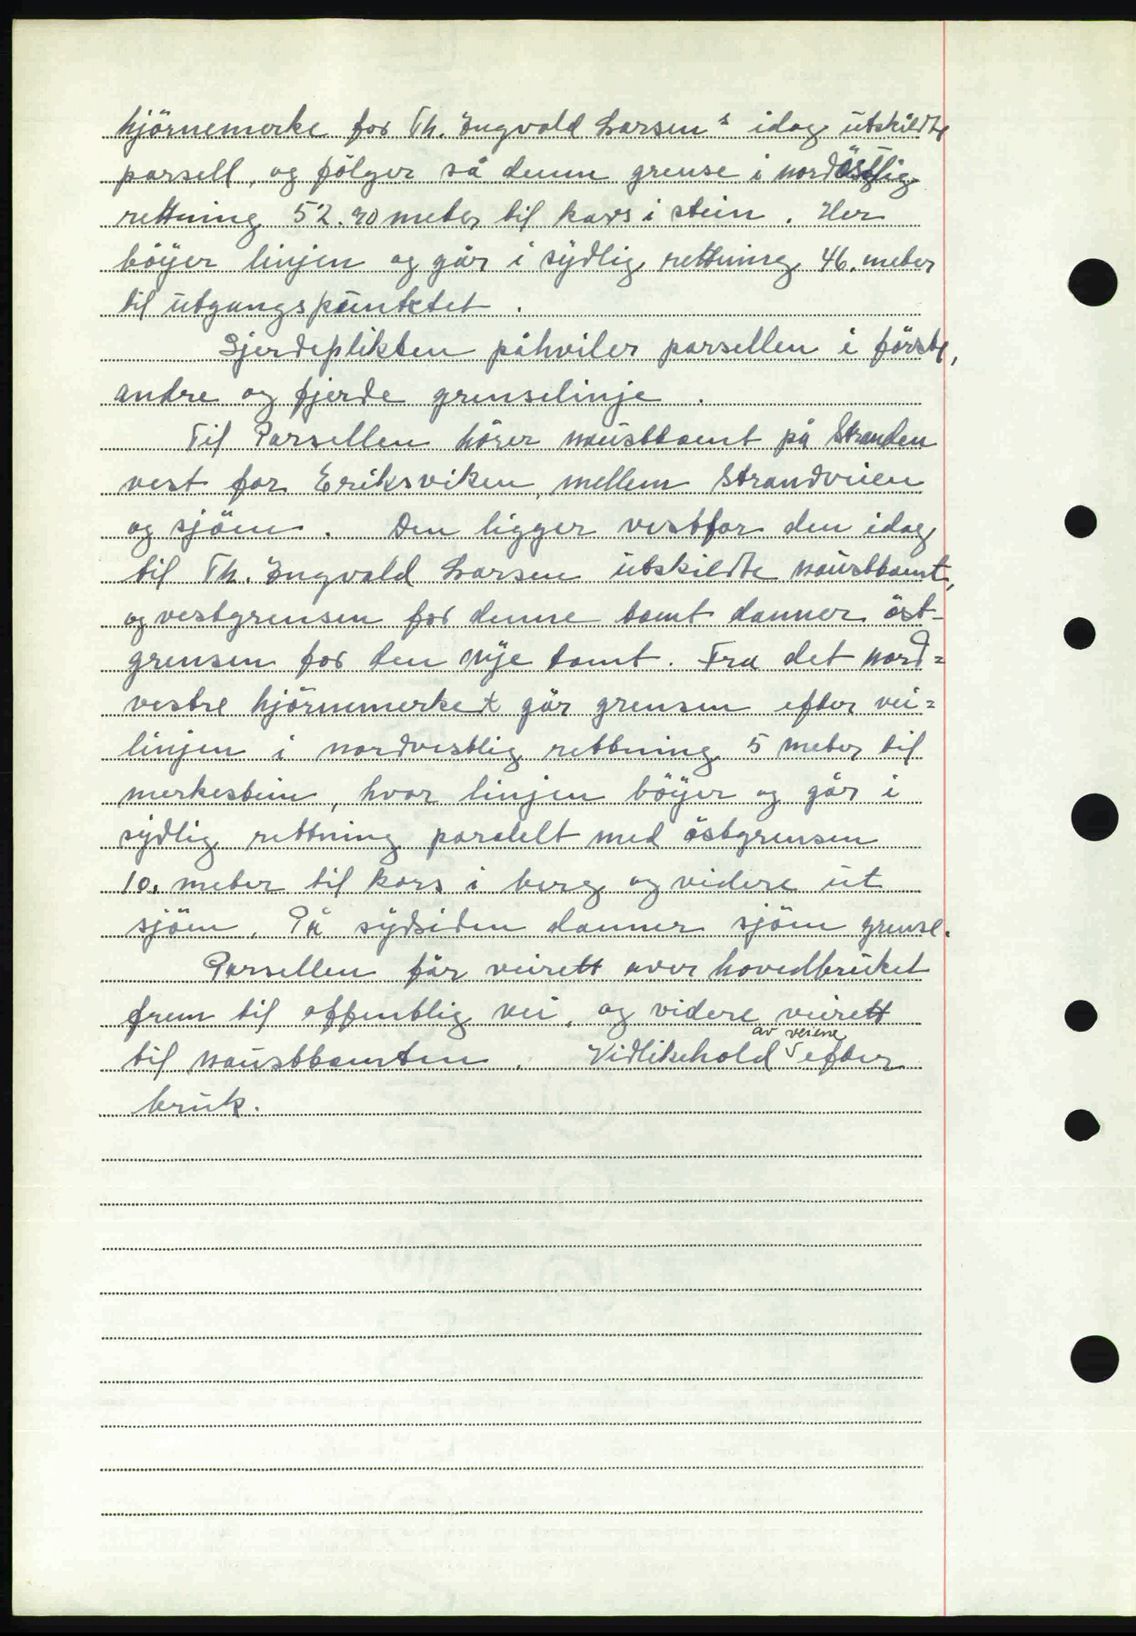 hjörnemerke for Th. Ingvald Larsen s idag utskildte
parsell, og fölger så denn grense i nordöstlig
rettning 52.70 meter til kors i stein. Her
böyer linjen og går i sydlig rettning 46. meter
til utgangspunktet.
Gjerdeplikten påhviler parsellen i förste,
andre og fjerde grenselinje.
Til Parsellen hörer nausttomt på Stranden
vest for Eriksviken, mellem Strandveien
og sjöen. Den ligger vestfor den idag
til Th. Ingvald Larsen utskildte nausttomt,
og vestgrensen for denne tomt danner öst-
grensen for den nye tomt. Fra det nord=
vestre hjörnemerket går grensen efter vei=
linjen i nordvestlig rettning 5 meter til
merkestein, hvor linjen böyer og går i
sydlig rettning paralelt med östgrensen
10. meter til kors i berg og videre ut
sjöen. På sydsiden danner sjöen grense.
Parsellen får veirett over hovedbruket
frem til offentlig vei, og videre veirett
til nausttomten. Vidlikehold av veiene efter
bruk.